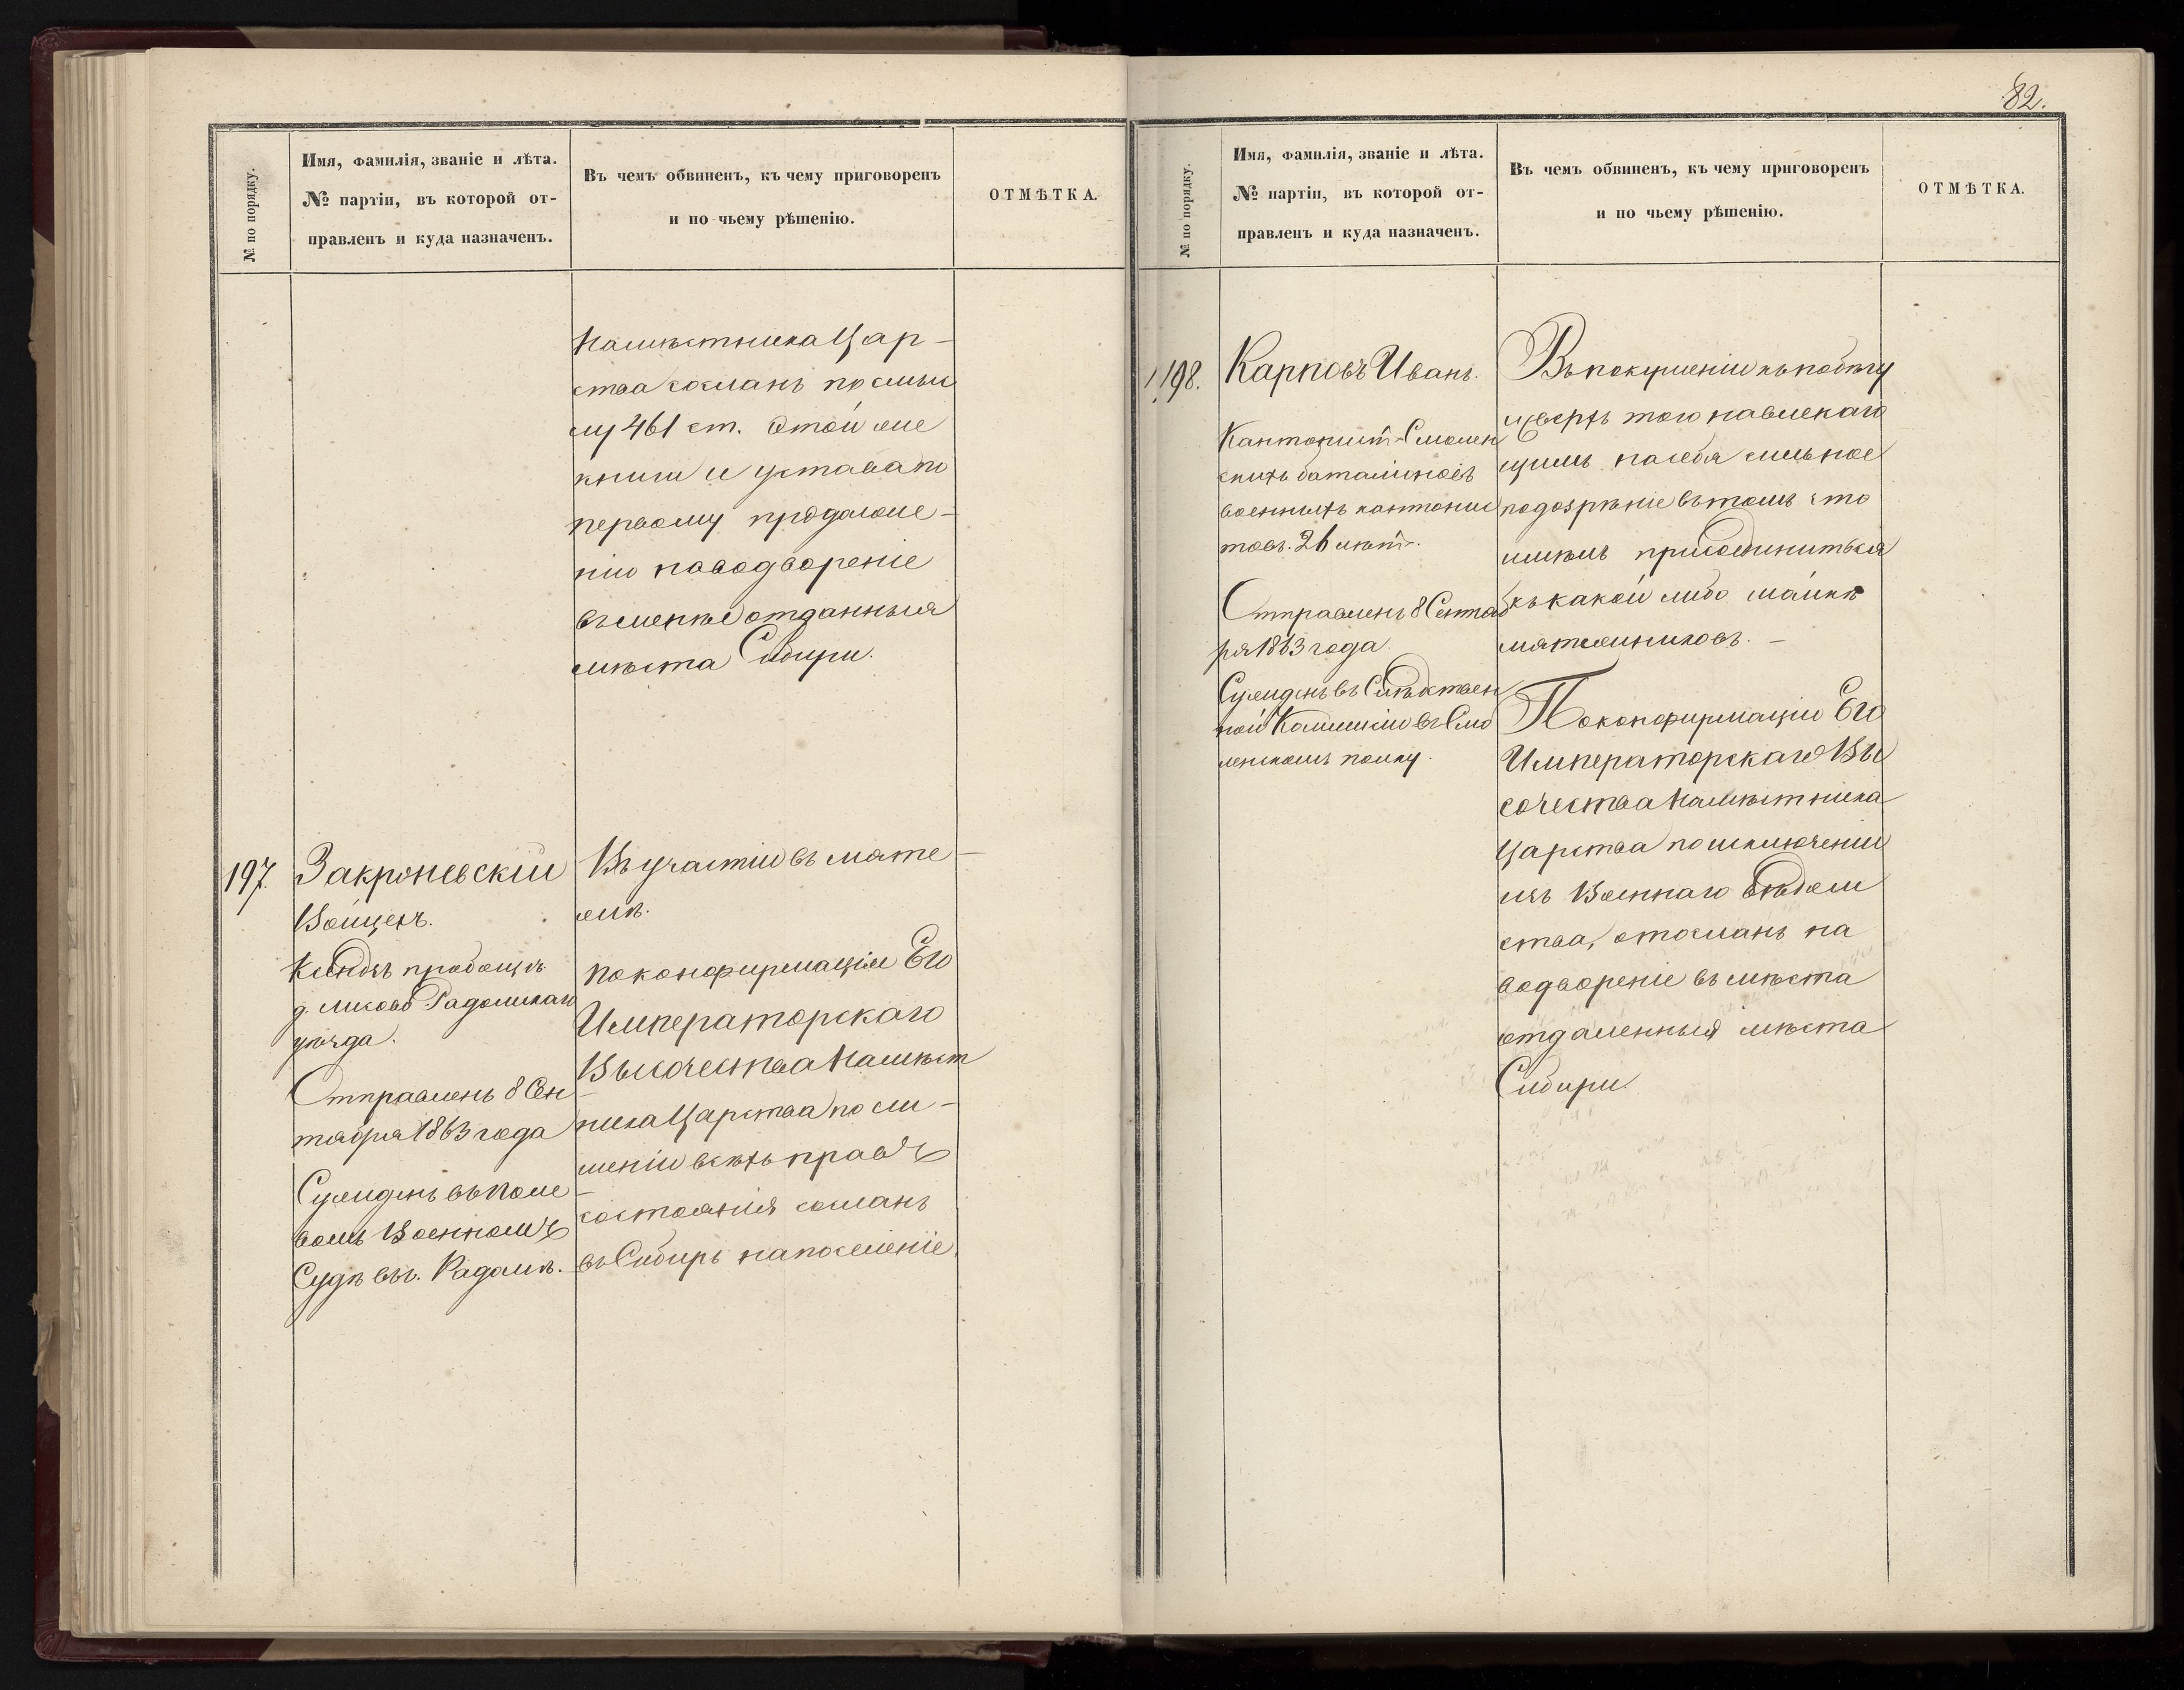 № по порядку.
Имя, фамилія, званіе и лѣта.
№ партіи, въ которой от-
правленъ и куда назначенъ.
Въ чемъ обвиненъ, къ чему приговоренъ
и по чьему рѣшенію.
ОТМѢТКА.
Намѣстника Цар-
ства сосланъ по смыс
лу 461 ст. Этой же
книги и устава по
первому продолже-
нію на водвореніе
въ менѣе отданныя
мѣста Сибири.
197.
Закроневскій
Войцехъ.
Ксендзъ пробощъ
д. Радомскаго
уѣзда.
Отправленъ 8 Сен
тября 1863 года
Сужденъ въ Поле-
вомъ Военномъ
Судѣ въ г. Радомѣ.
Въ участіи въ мяте-
жѣ.
По конфирмаціи Его
Императорскаго
Высочества Намѣст
ника Царства по ли-
шеніи всѣхъ правъ
состоянія сосланъ
въ Сибирь на поселеніе.
82.
№ по порядку.
Имя, фамилія, званіе и лѣта.
№ партіи, въ которой от-
правленъ и куда назначенъ.
Въ чемъ обвиненъ, къ чему приговоренъ
и по чьему рѣшенію.
ОТМѢТКА.
198.
Карповъ Иванъ.
Кантонистъ Смолен
скихъ баталіоновъ
военныхъ кантонис
товъ. 26 лѣтъ.
Отправленъ 8 Сентяб
ря 1863 года.
Сужденъ въ Слѣдствен
ной Коммисіи въ Смо
ленскомъ полку.
Въ покушеніи къ побѣгу
и сверхъ того навлекаю
щимъ на себя сильное
подозрѣніе въ томъ что
имѣлъ присоединиться
къ какой либо шайкѣ
мятежниковъ. -
По конфирмаціи Его
Императорскаго Вы
сочества Намѣстника
Царства по исключеніи
изъ Военнаго вѣдом
ства, отосланъ на
водвореніе въ мѣста
отдаленныя мѣста
Сибири.